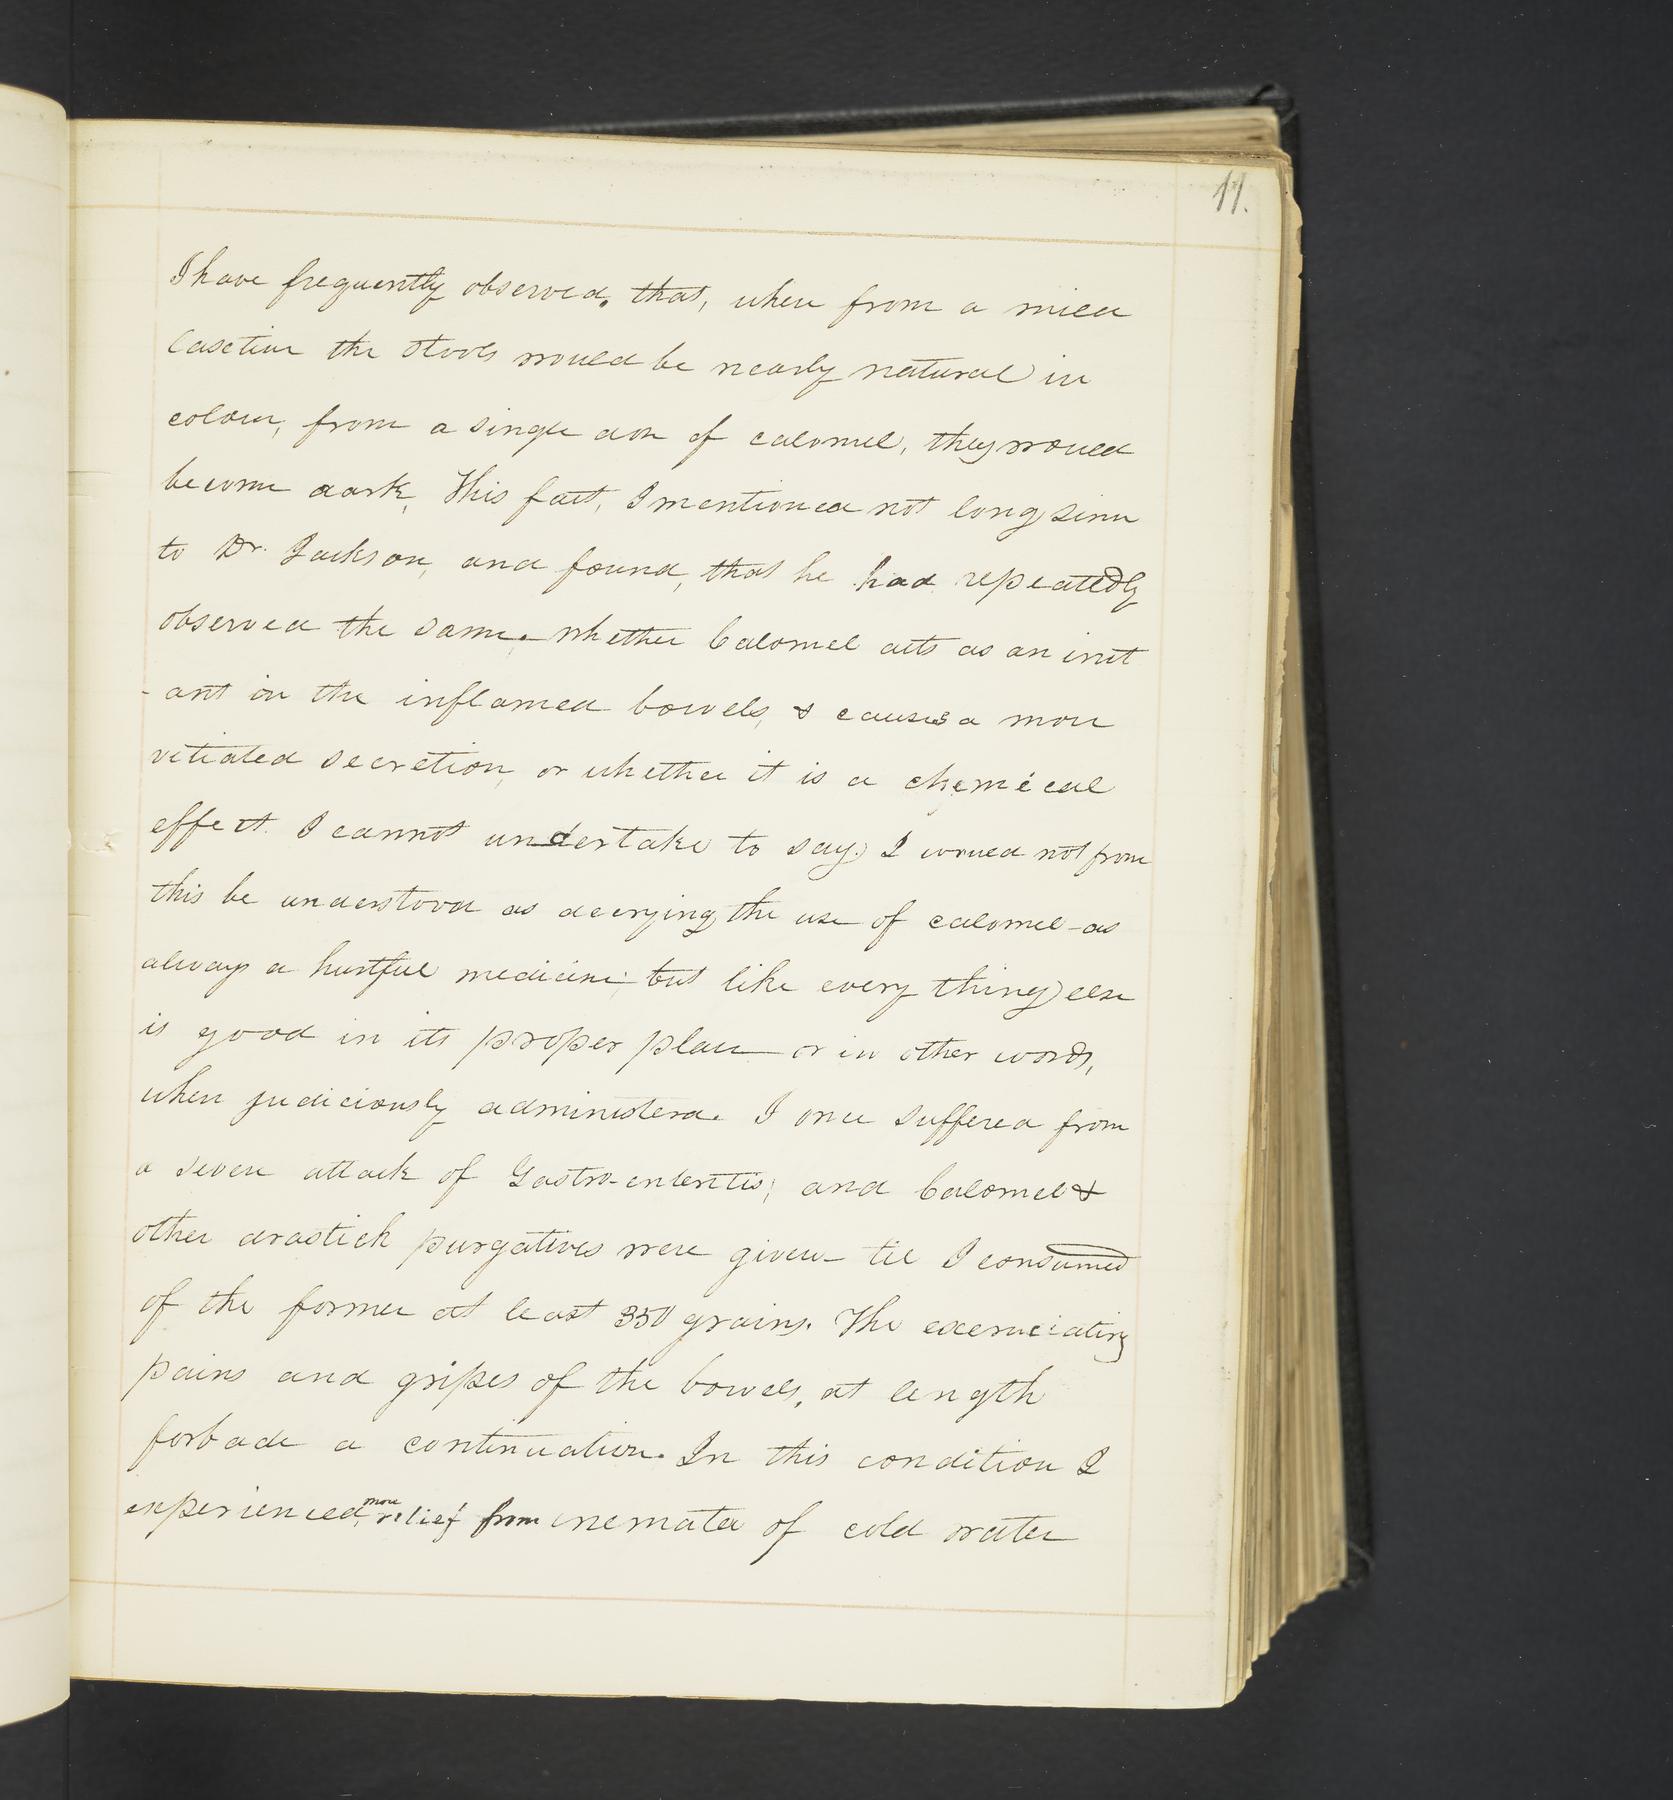 17.
I have frequently observed, that, when from a mild
laxative the stools would be nearly natural in
colour, from a single dose of calomel, they would
become dark, This fact, I mentioned not long since
to Dr. Jackson, and found, that he had repeatedly
observed the same. Whether Calomel acts as an irrit
-ant in the inflamed bowels, & causes a more
vitiated secretion, or whether it is a chemical
effect. I cannot undertake to say. I would not from
this be understood as decrying the use of calomel - as
always a hurtful medicine; but like every thing else
is good in its proper place - or in other words,
when judiciously administerd. I once suffered from
a severe attack of Gastro-enteritis; and Calomel &
other drastick purgatives were given - till I consumed
of the former at least 350 grains. The excruciating
pains and gripes of the bowels, at length
forbade a continuation. In this condition I
experienced more relief from enemata of cold water